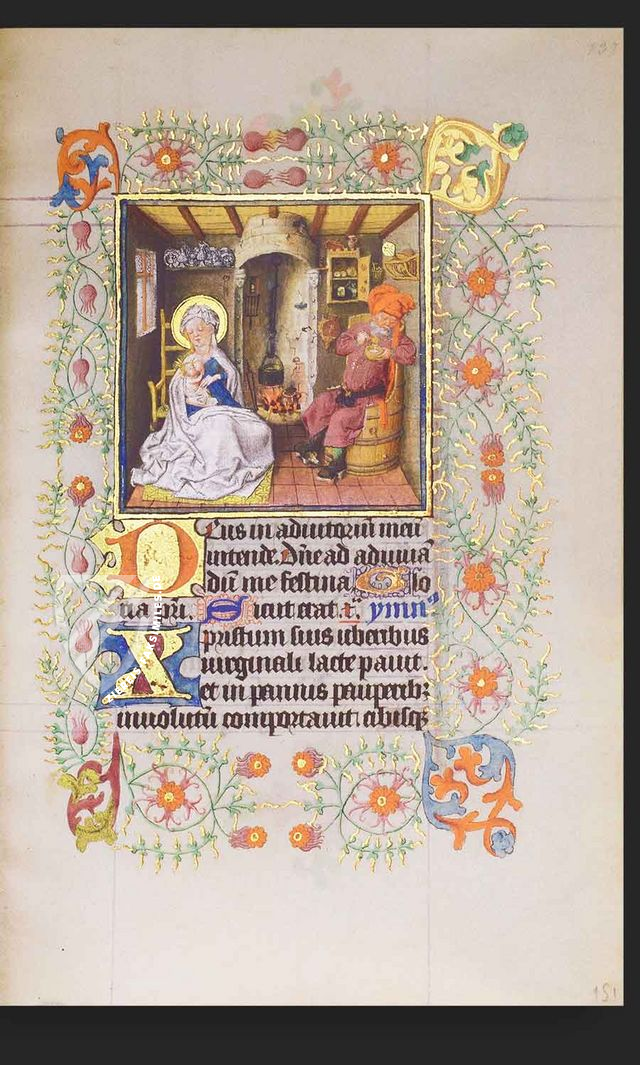 Deus in adiutoriū meū
intende. Dn̄e ad adiuuā
dū me festina. Glo
ria pri. Sicut erat. ymnꝰ
Xpristum suis uberibus
uirginali lacte pauit.
et in pannis pauperibꝫ
inuolutū comportauit cibisqꝫ
151